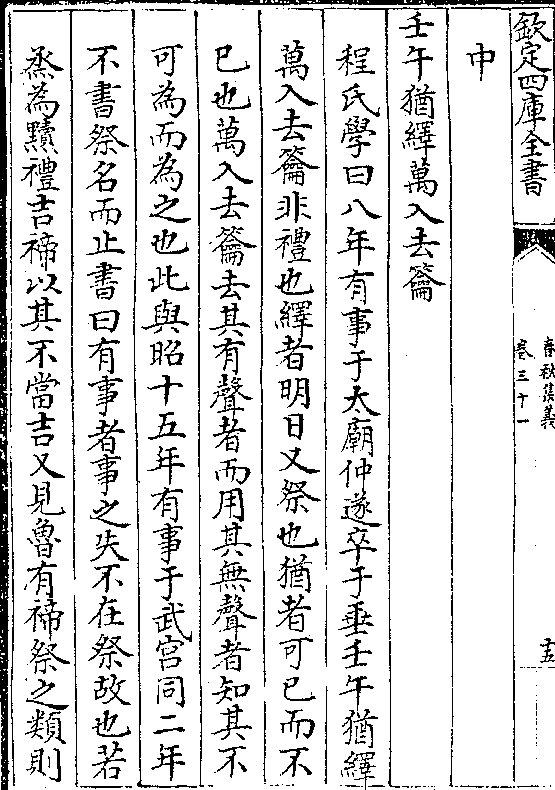 欽定四庫全書
春秋集義
卷三十一
十五
申
壬午猶繹萬入去籥
程氏學曰八年有事于太廟仲遂卒于垂壬午猶繹
萬入去籥非禮也繹者明日又祭也猶者可已而不
已也萬入去籥去其有聲者而用其無聲者知其不
可為而為之也此與昭十五年有事于武宮同二年
不書祭名而止書曰有事者事之失不在祭故也若
烝為黷禮吉禘以其不當吉又見魯有禘祭之類則